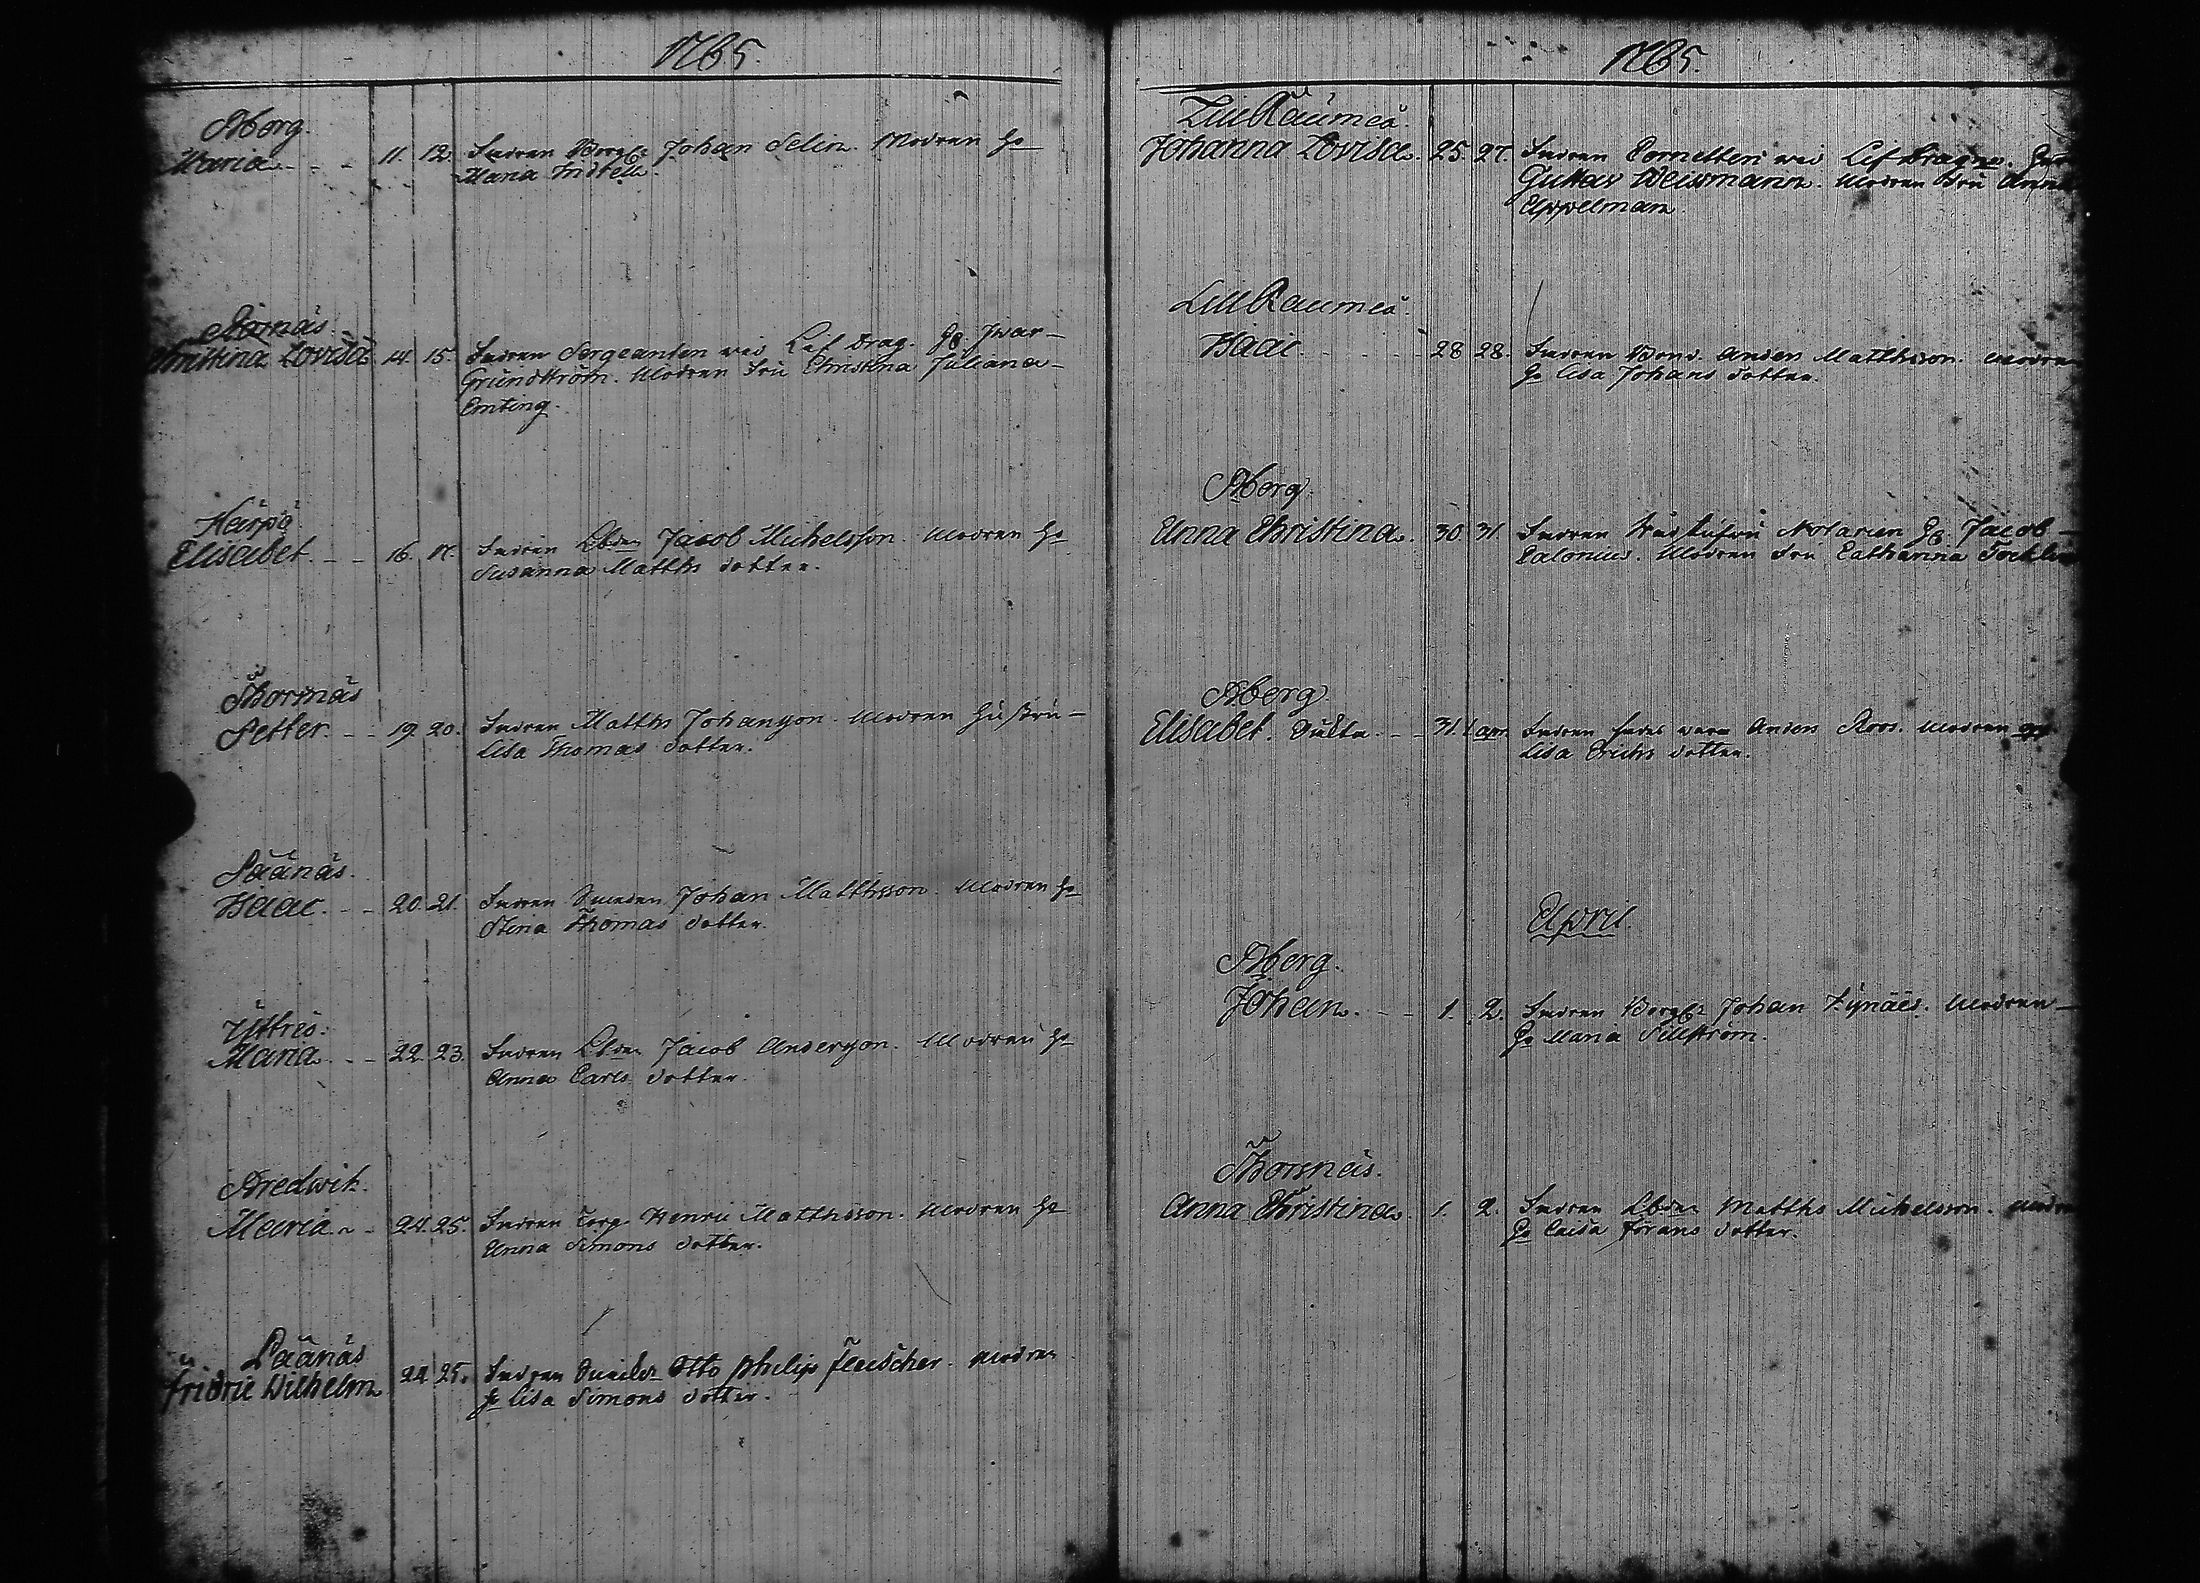 1765.
Aborg.
Maria 11. 12. Fadren Borg. Johan Selin. Modren H
Maria Indrén
Starnäs
Christina Lovisa 14. 15. Fadren Sergeanten vid Lif Drag. H Iwar
Grundström. Modren Fru Christina Juliana
Emting.
Karpö
Elisabet. 16. 17. Fadren Lbden Jacob Michelsson. Modren H
Susanna Matths dotter.
Thorsnäs
Petter. 19. 20. Fadren Matths Johansson. Modren Hustru
Lisa Thomas dotter.
Päänäs.
Isaac. 20. 21. Fadren Johan Matthsson. Modren H
Stina Thomas dotter.
Uttris.
Maria 22. 23. Fadren Lbden Jacob Andersson. Modren H
Anna Carls dotter.
Bredwik.
Maria 24. 25. Fadren Torp. Henric Matthsson. Modren H
Anna Simons dotter.
Päänäs
Fridric Wilhelm 24 25. Fadren Otto Philip Fleischer. Modren
H Lisa Simons dotter.
1765.
Lill Raumeå.
Johanna Lovisa. 25. 27. Fadren Cornetten vid Lif Drag.
Gustav Weissmann. Modren Fru Anna
Appelman
Lill Raumeå.
Isaac 28 28. Fadren Bond. Anders Matthsson. Modren
H Lisa Johans dotter.
Aborg.
Anna Christina. 30. 31. Fadren Notarien H Jacob
Calonius. Modren Fru Catharina
Aborg
Elisabet. 31. 1 apr. Fadren Anders Roos. Modren
Lisa Erichs dotter.
April.
Aborg.
Johan. 1. 2. Fadren Borg. Johan Kynäės. Modren
H Maria Sillström.
Thorsnäs.
Anna Christina. 1. 2. Fadren Lbden Matths Michelsson. Modren
H Caisa Jörans dotter.